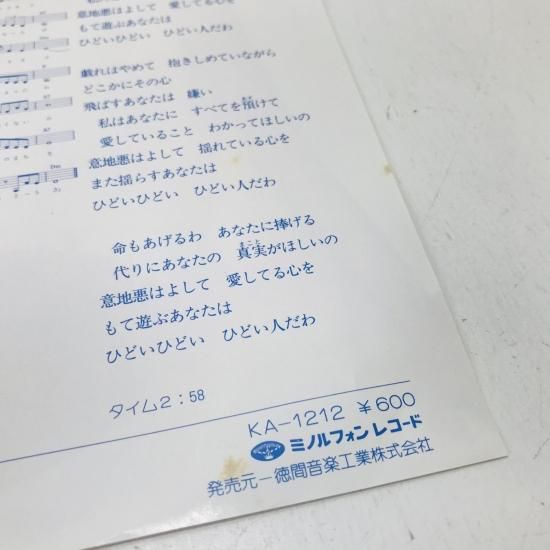 意地悪はよして　愛してる心を
もて遊ぶあなたは
ひどいひどい　ひどい人だわ
戯れはやめて　抱きしめていながら
どこかにその心
飛ばすあなたは　嫌い
私はあなたに　すべてを預けて
愛していること　わかってほしいの
意地悪はよして　揺れている心を
また揺らすあなたは
ひどいひどい　ひどい人だわ
命もあげるわ　あなたに捧げる
代りにあなたの　真実がほしいの
意地悪はよして　愛してる心を
もて遊ぶあなたは
ひどいひどい　ひどい人だわ
タイム2：58
KA-1212 ¥600
ミノルフォンレコード
発売元―徳間音楽工業株式会社